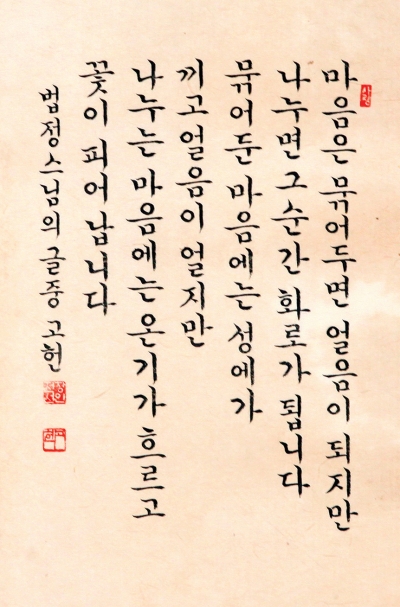 마음은 묶어두면 얼음이 되지만
나누면 그 순간 화로가 됩니다
묶어둔 마음에는 성에가
끼고 얼음이 얼지만
나누는 마음에는 온기가 흐르고
꽃이 피어 납니다
법정스님의 글 중 고헌